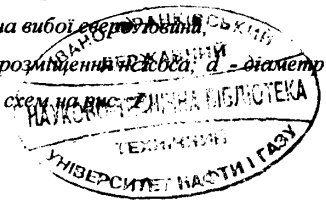 на вибої свердловини,
розміщення насоса; d - діаметр
схем на рис.
ІВАНО-ФРАНКІВСЬКИЙ
ДЕРЖАВНИЙ
НАУКОВО-ТЕХНІЧНА БІБЛІОТЕКА
ТЕХНІЧНИЙ
УНІВЕРСИТЕТ НАФТИ І ГАЗУ